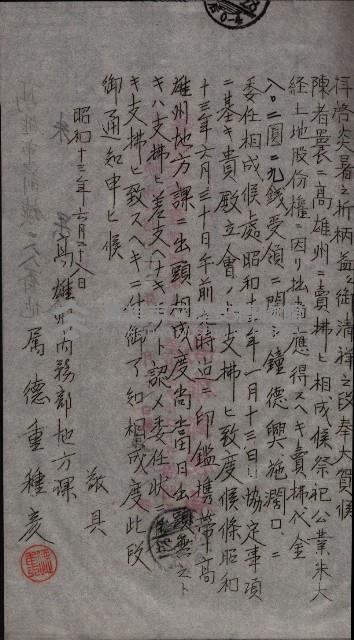 拝啓炎暑之折柄益々御清祥之段奉大賀候
陳者曩ニ高雄州ニ賣拂ヒ相成候祭祀公業朱大
経土地股份權ニ因リ出[...]應得スヘキ賣拂代金
八〇二圓二九銭受領ニ関シ鐘德興施潤口ニ
委任相成候處昭和十三年一月十三日協定事項
ニ基キ貴殿立會ノ上支拂ヒ致度候條昭和
十三年六月三十日午前[...]時迄ニ印鑑携帯高
雄州地方課ニ出頭相成度尚當日出頭無之ト
キハ支拂ヒ差支ヘナキモノト認メ委任状ニ[...]
キ支拂ヒ致スヘキニ付御了知相成度此段
御通知申上候
敬具
昭和十三年六月二十八日
高雄州内務部地方課
属 德重種彦